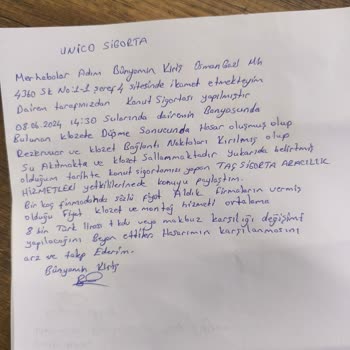 UNICO SİGORTA
Merhabalar Adım Bünyamin Kiriş Osman Gazi Mh
4360 Sk No:1-1 Şeref 4 sitesinde ikamet etmekteyim
Dairem tarafınızdan Konut Sigortası yapılmıştır
08.06.2024 14:30 Sularında dairemin Banyosunda
Bulunan klozete Düşme Sonucunda Hasar oluşmuş olup
Rezervuar ve klozet Bağlantı Noktaları Kırılmış olup
Su Akıtmakta ve klozet Sallanmaktadır yukarıda belirtmiş
olduğum tarihte konut sigortamısı yapan TAŞ SİGORTA ARACILIK
HİZMETLERİ yetkililerinede konuyu paylaştım.
Bir kaç firmadanda sözlü fiyat Aldık firmaların vermiş
olduğu Fiyat klozet ve montaj hizmeti ortalama
8 bin Türk lirası + kdv veya makbuz karşılığı değişimi
yapılacağını Beyan ettiler Hasarımın karşılanmasını
arz ve talep Ederim.
Bünyamin Kiriş